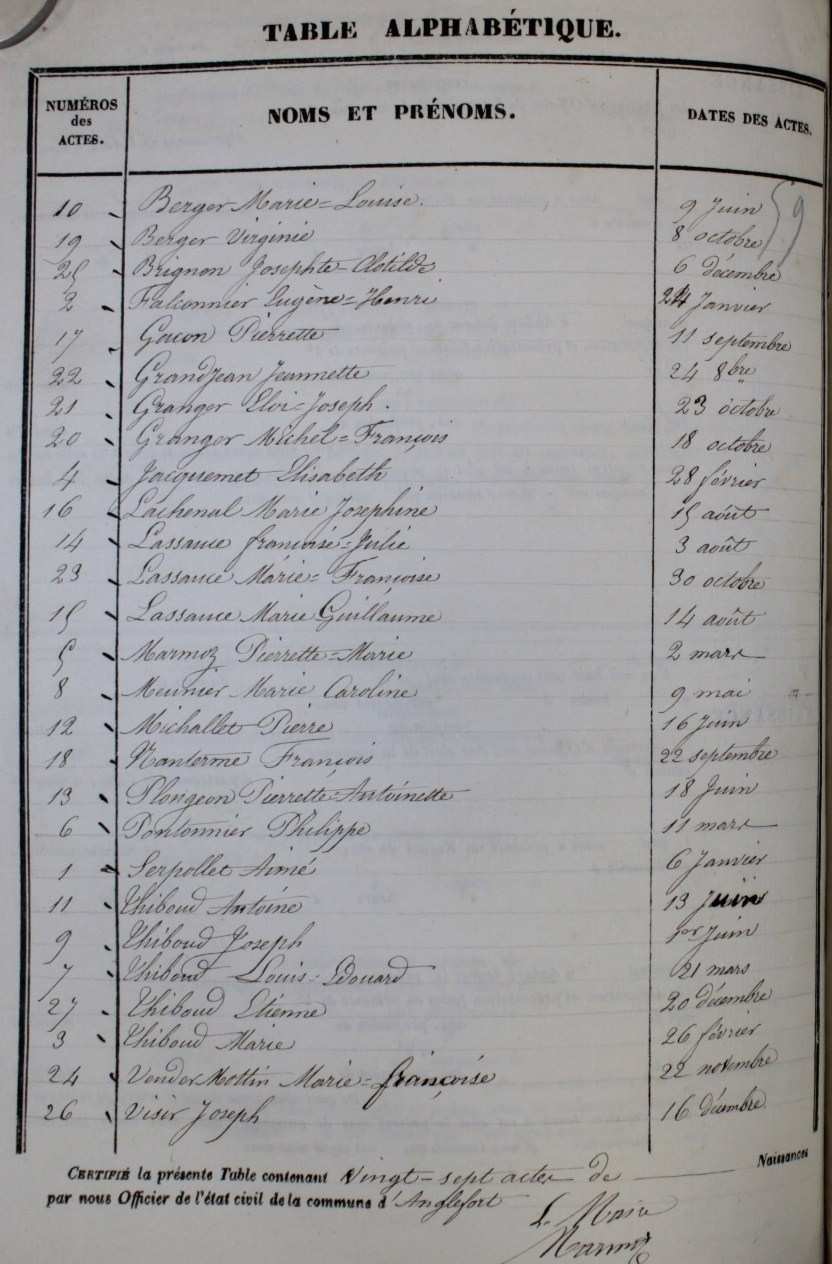 TABLE ALPHABÉTIQUE.
NUMÉROS des ACTES. NOMS ET PRÉNOMS. DATES DES ACTES.
10 Berger Marie=Louise. 9 Juin
19 Berger Virginie 8 octobre
25 Brignon Josephte=Clotilde 6 décembre
2 Falconnier Eugène=Henri 24 Janvier
17 Gacon Pierrette 11 septembre
22 Grandjean Jeannette 24 8bre
21 Granger Eloi=Joseph. 23 octobre
20 Granger Michel=François 18 octobre
4 Jacquemet Elisabeth 28 février
16 Lachenal Marie Josephine 15 août
14 Lassauce françoise=Julie 3 août
23 Lassauce Marie=Françoise 30 octobre
15 Lassauce Marie Guillaume 14 août
5 Marmoz Pierrette=Marie 2 mars
8 Meunier Marie Caroline 9 mai
12 Michallet Pierre 16 Juin
18 Nanterme François 22 septembre
13 Plongeon Pierrette=Antoinette 18 Juin
6 Pontonnier Philippe 11 mars
1 Serpollet Aimé 6 Janvier
11 Thiboud Antoine 13 Juin
9 Thiboud Joseph 1er Juin
7 Thiboud Louis=Edouard 21 mars
27 Thiboud Etienne 20 décembre
3 Thiboud Marie 26 février
24 VenderMottin Marie=françoise 22 novembre
26 Visir Joseph 16 décembre
CERTIFIÉ la présente Table contenant Vingt=sept actes de Naissances
par nous Officier de l'état civil de la commune d'Anglefort
L. Maire
Marmoz